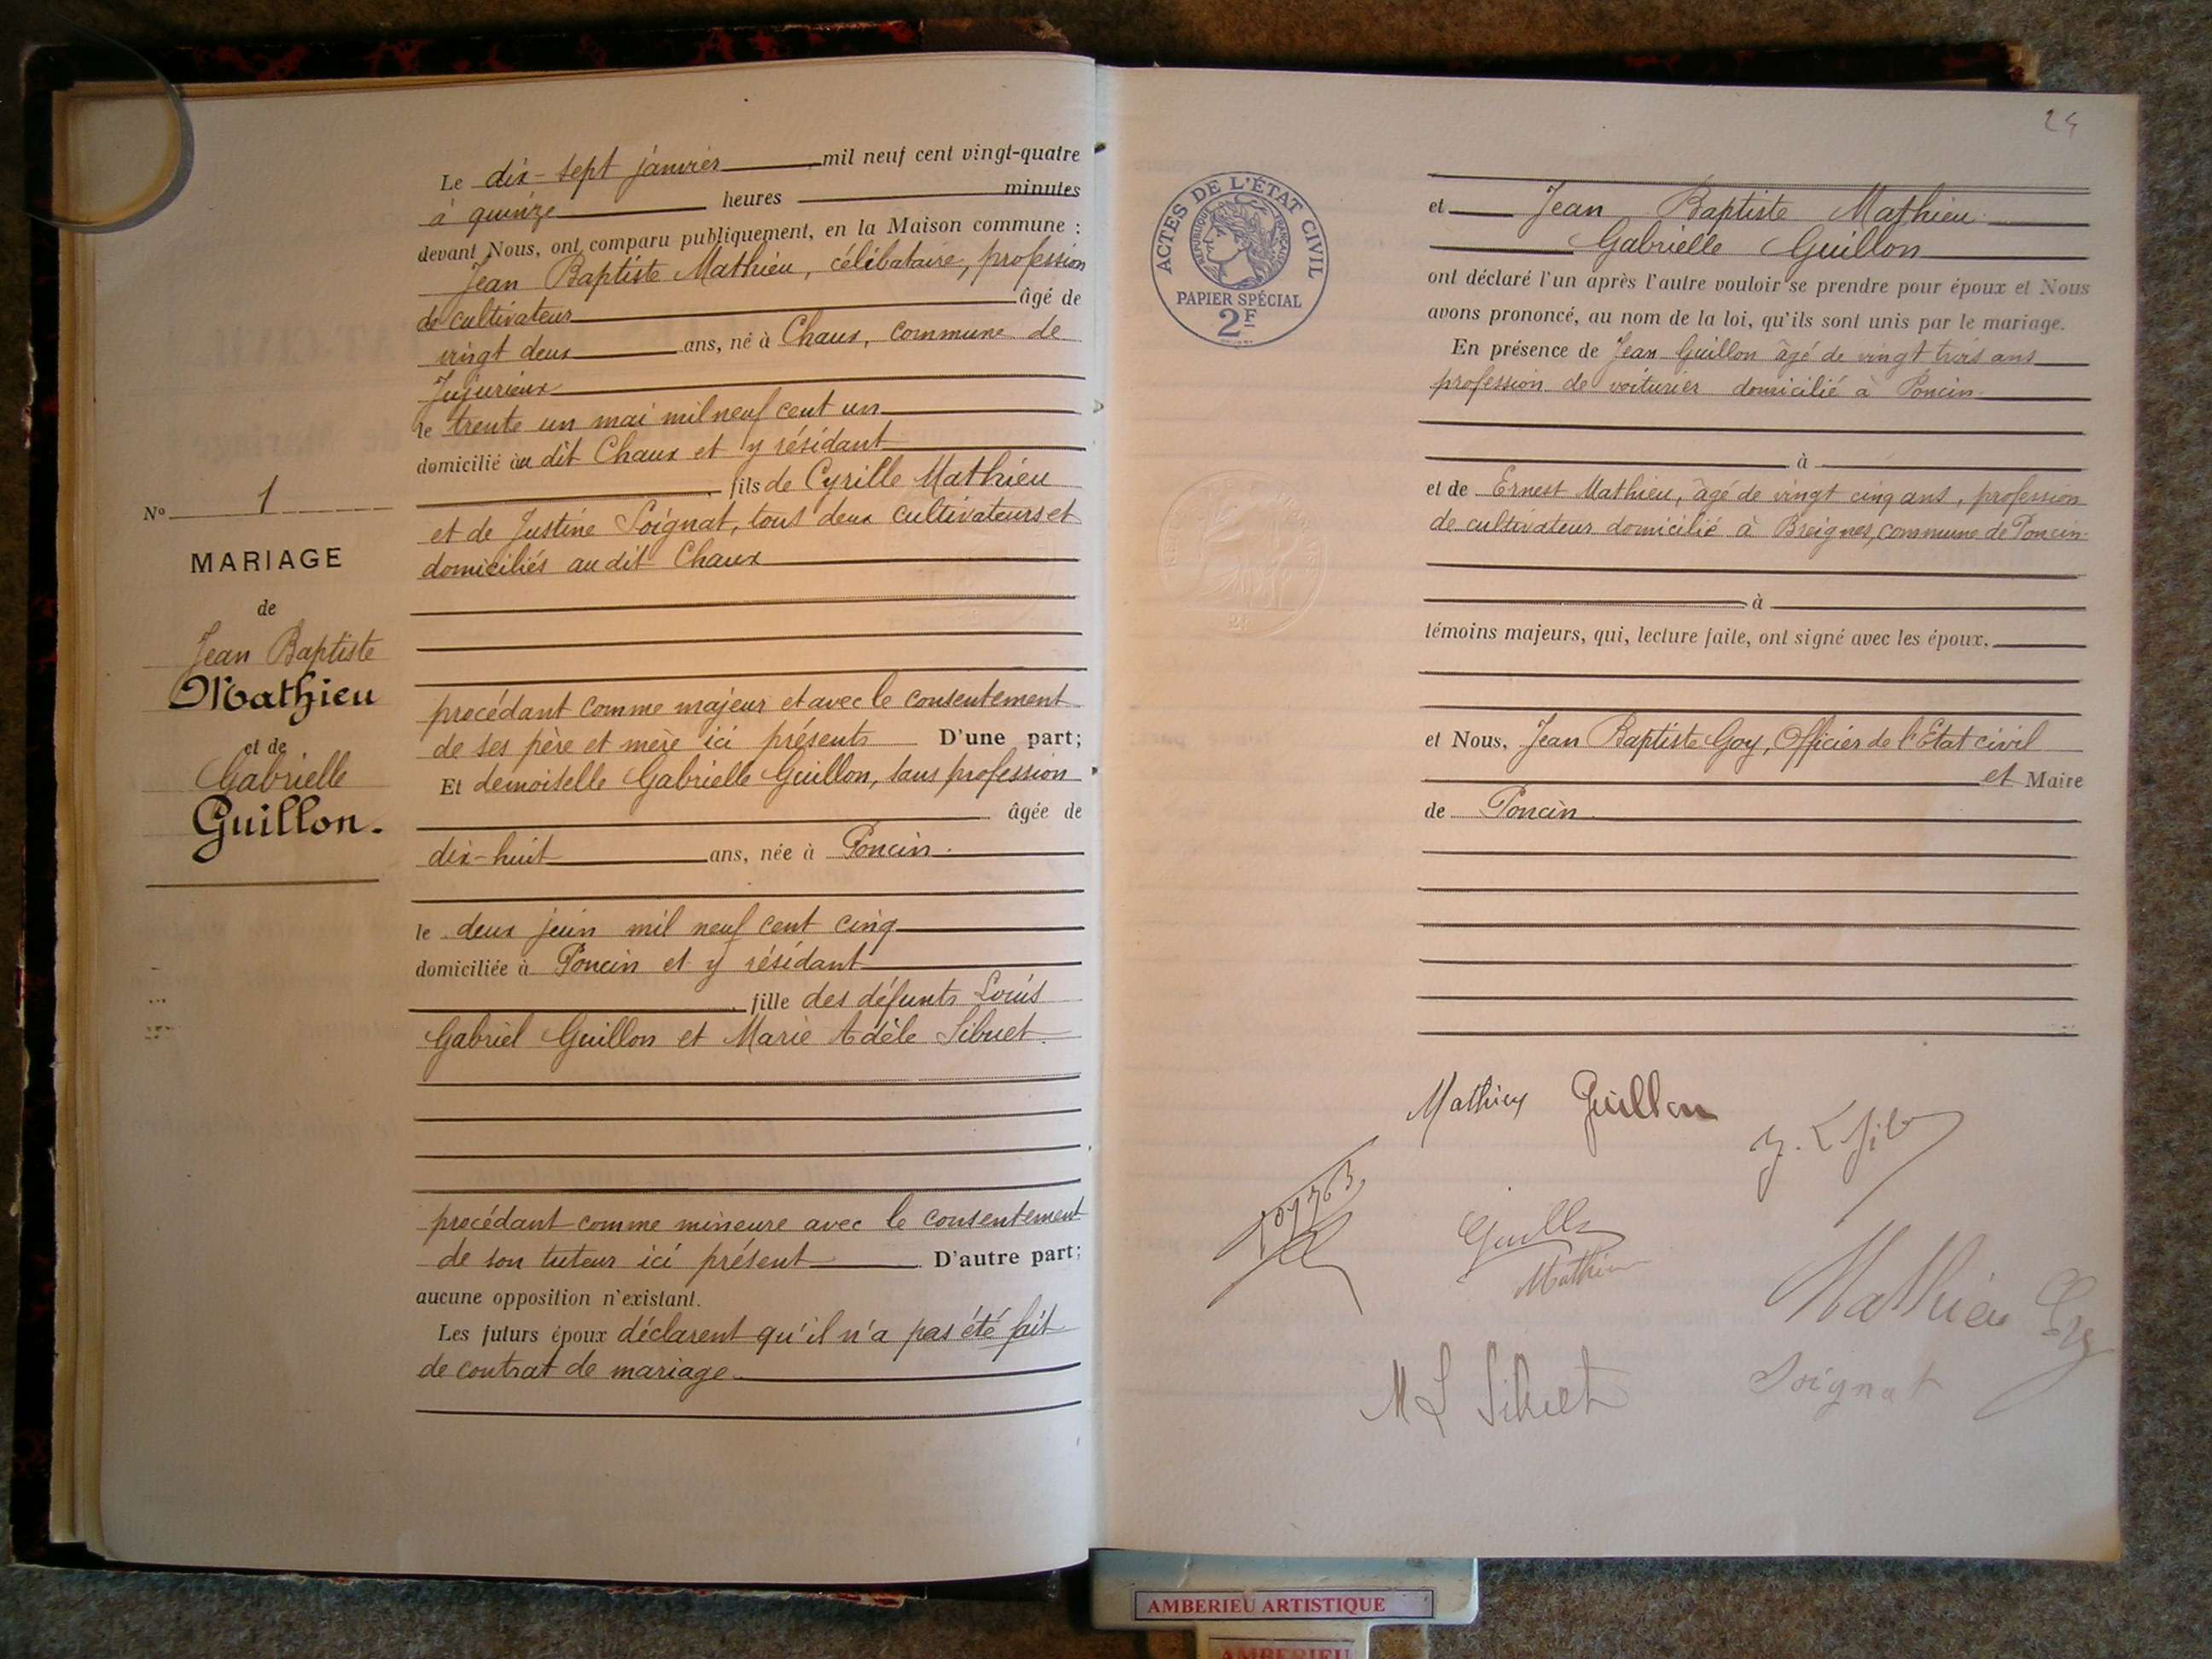 Le dix-sept janvier mil neuf cent vingt-quatre
à quinze heures minutes
devant Nous, ont comparu publiquement, en la Maison commune :
Jean Baptiste Mathieu, célibataire, profession
de cultivateur âgé de
vingt deux ans, né à Chaux, commune de
Jujurieux
le trente un mai mil neuf cent un
domicilié au dit Chaux et y résidant
fils de Cyrille Mathieu
et de Justine Soignat, tous deux cultivateurs et
domiciliés au dit Chaux
procédant comme majeur et avec le consentement
de ses père et mère ici présents D'une part;
Et demoiselle Gabrielle Guillon, sans profession
âgée de
dix-huit ans, née à Poncin.
le deux juin mil neuf cent cinq
domiciliée à Poncin et y résidant
fille des défunts Louis
Gabriel Guillon et Marie Adèle Sibuet.
procédant comme mineure avec le consentement
de son tuteur ici présent D'autre part;
aucune opposition n'existant.
Les futurs époux déclarent qu'il n'a pas été fait
de contrat de mariage.
No 1
MARIAGE
de
Jean Baptiste
Mathieu
et de
Gabrielle
Guillon.
24
ACTES DE L'ÉTAT CIVIL
RÉPUBLIQUE FRANÇAISE
PAPIER SPÉCIAL
2F
et Jean Baptiste Mathieu
Gabrielle Guillon
ont déclaré l'un après l'autre vouloir se prendre pour époux et Nous
avons prononcé, au nom de la loi, qu'ils sont unis par le mariage.
En présence de Jean Guillon âgé de vingt trois ans
profession de voiturier domicilié à Poncin
à
et de Ernest Mathieu, âgé de vingt cinq ans, profession
de cultivateur domicilié à Breignes, commune de Poncin
à
témoins majeurs, qui, lecture faite, ont signé avec les époux.
et Nous, Jean Baptiste Goy, Officier de l'Etat civil
et Maire
de Poncin
Mathieu Guillon
Mathieu
Mathieu
M L Sibuet
Soignat
AMBERIEU ARTISTIQUE
AMBERIEU